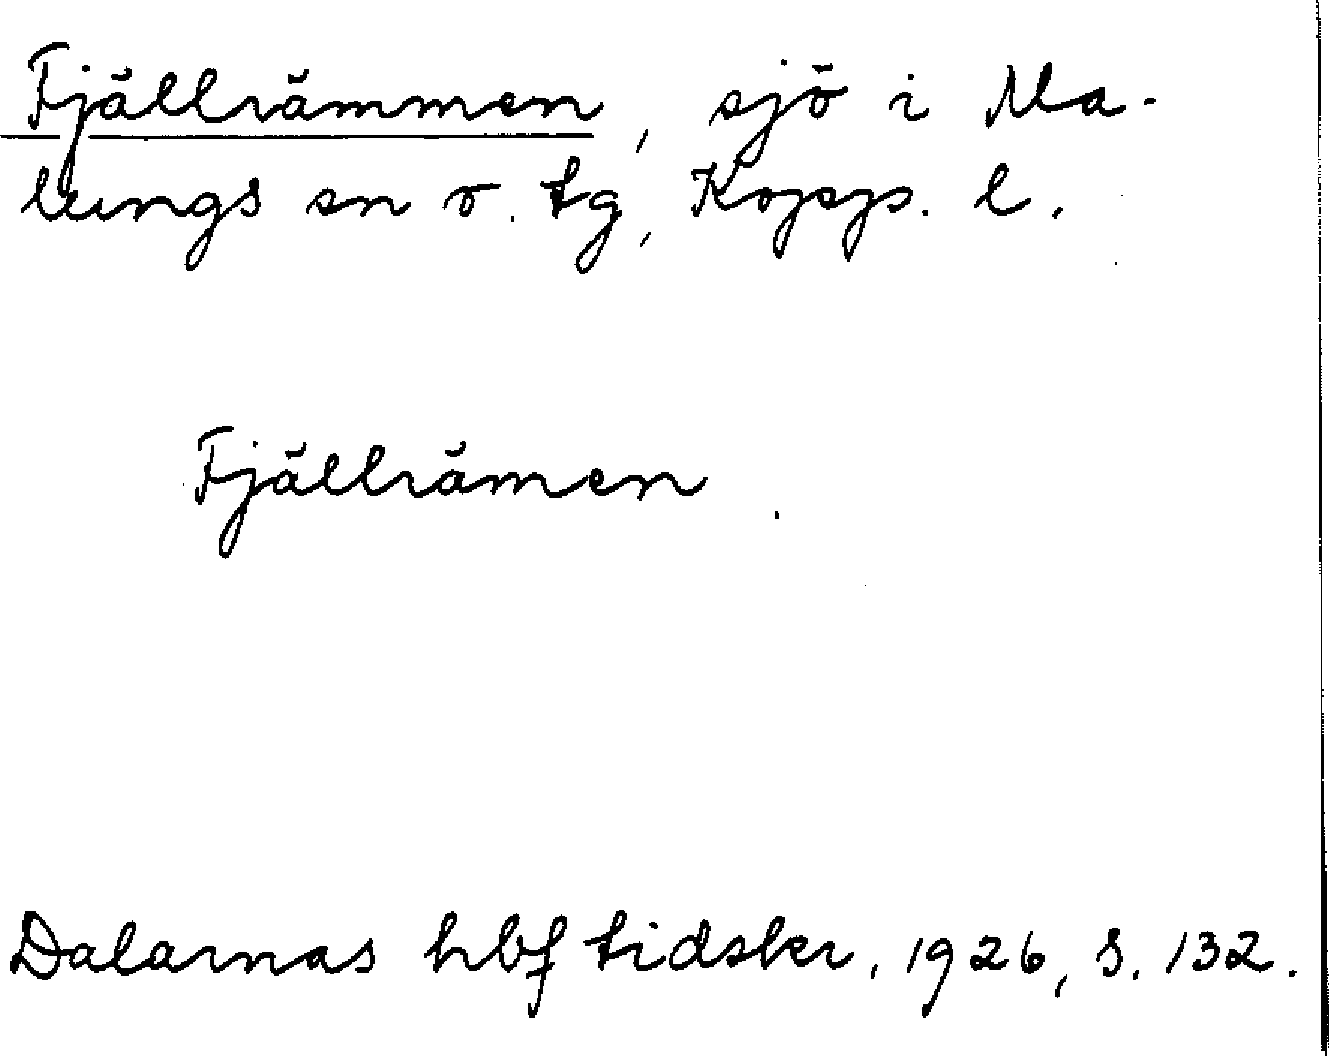 Fjällrämmen, sjö i Ma-
lungs sn o. tg, Kopp. l.
Fjällrämen.
Dalarnas hbf tidskr. 1926, s. 132.